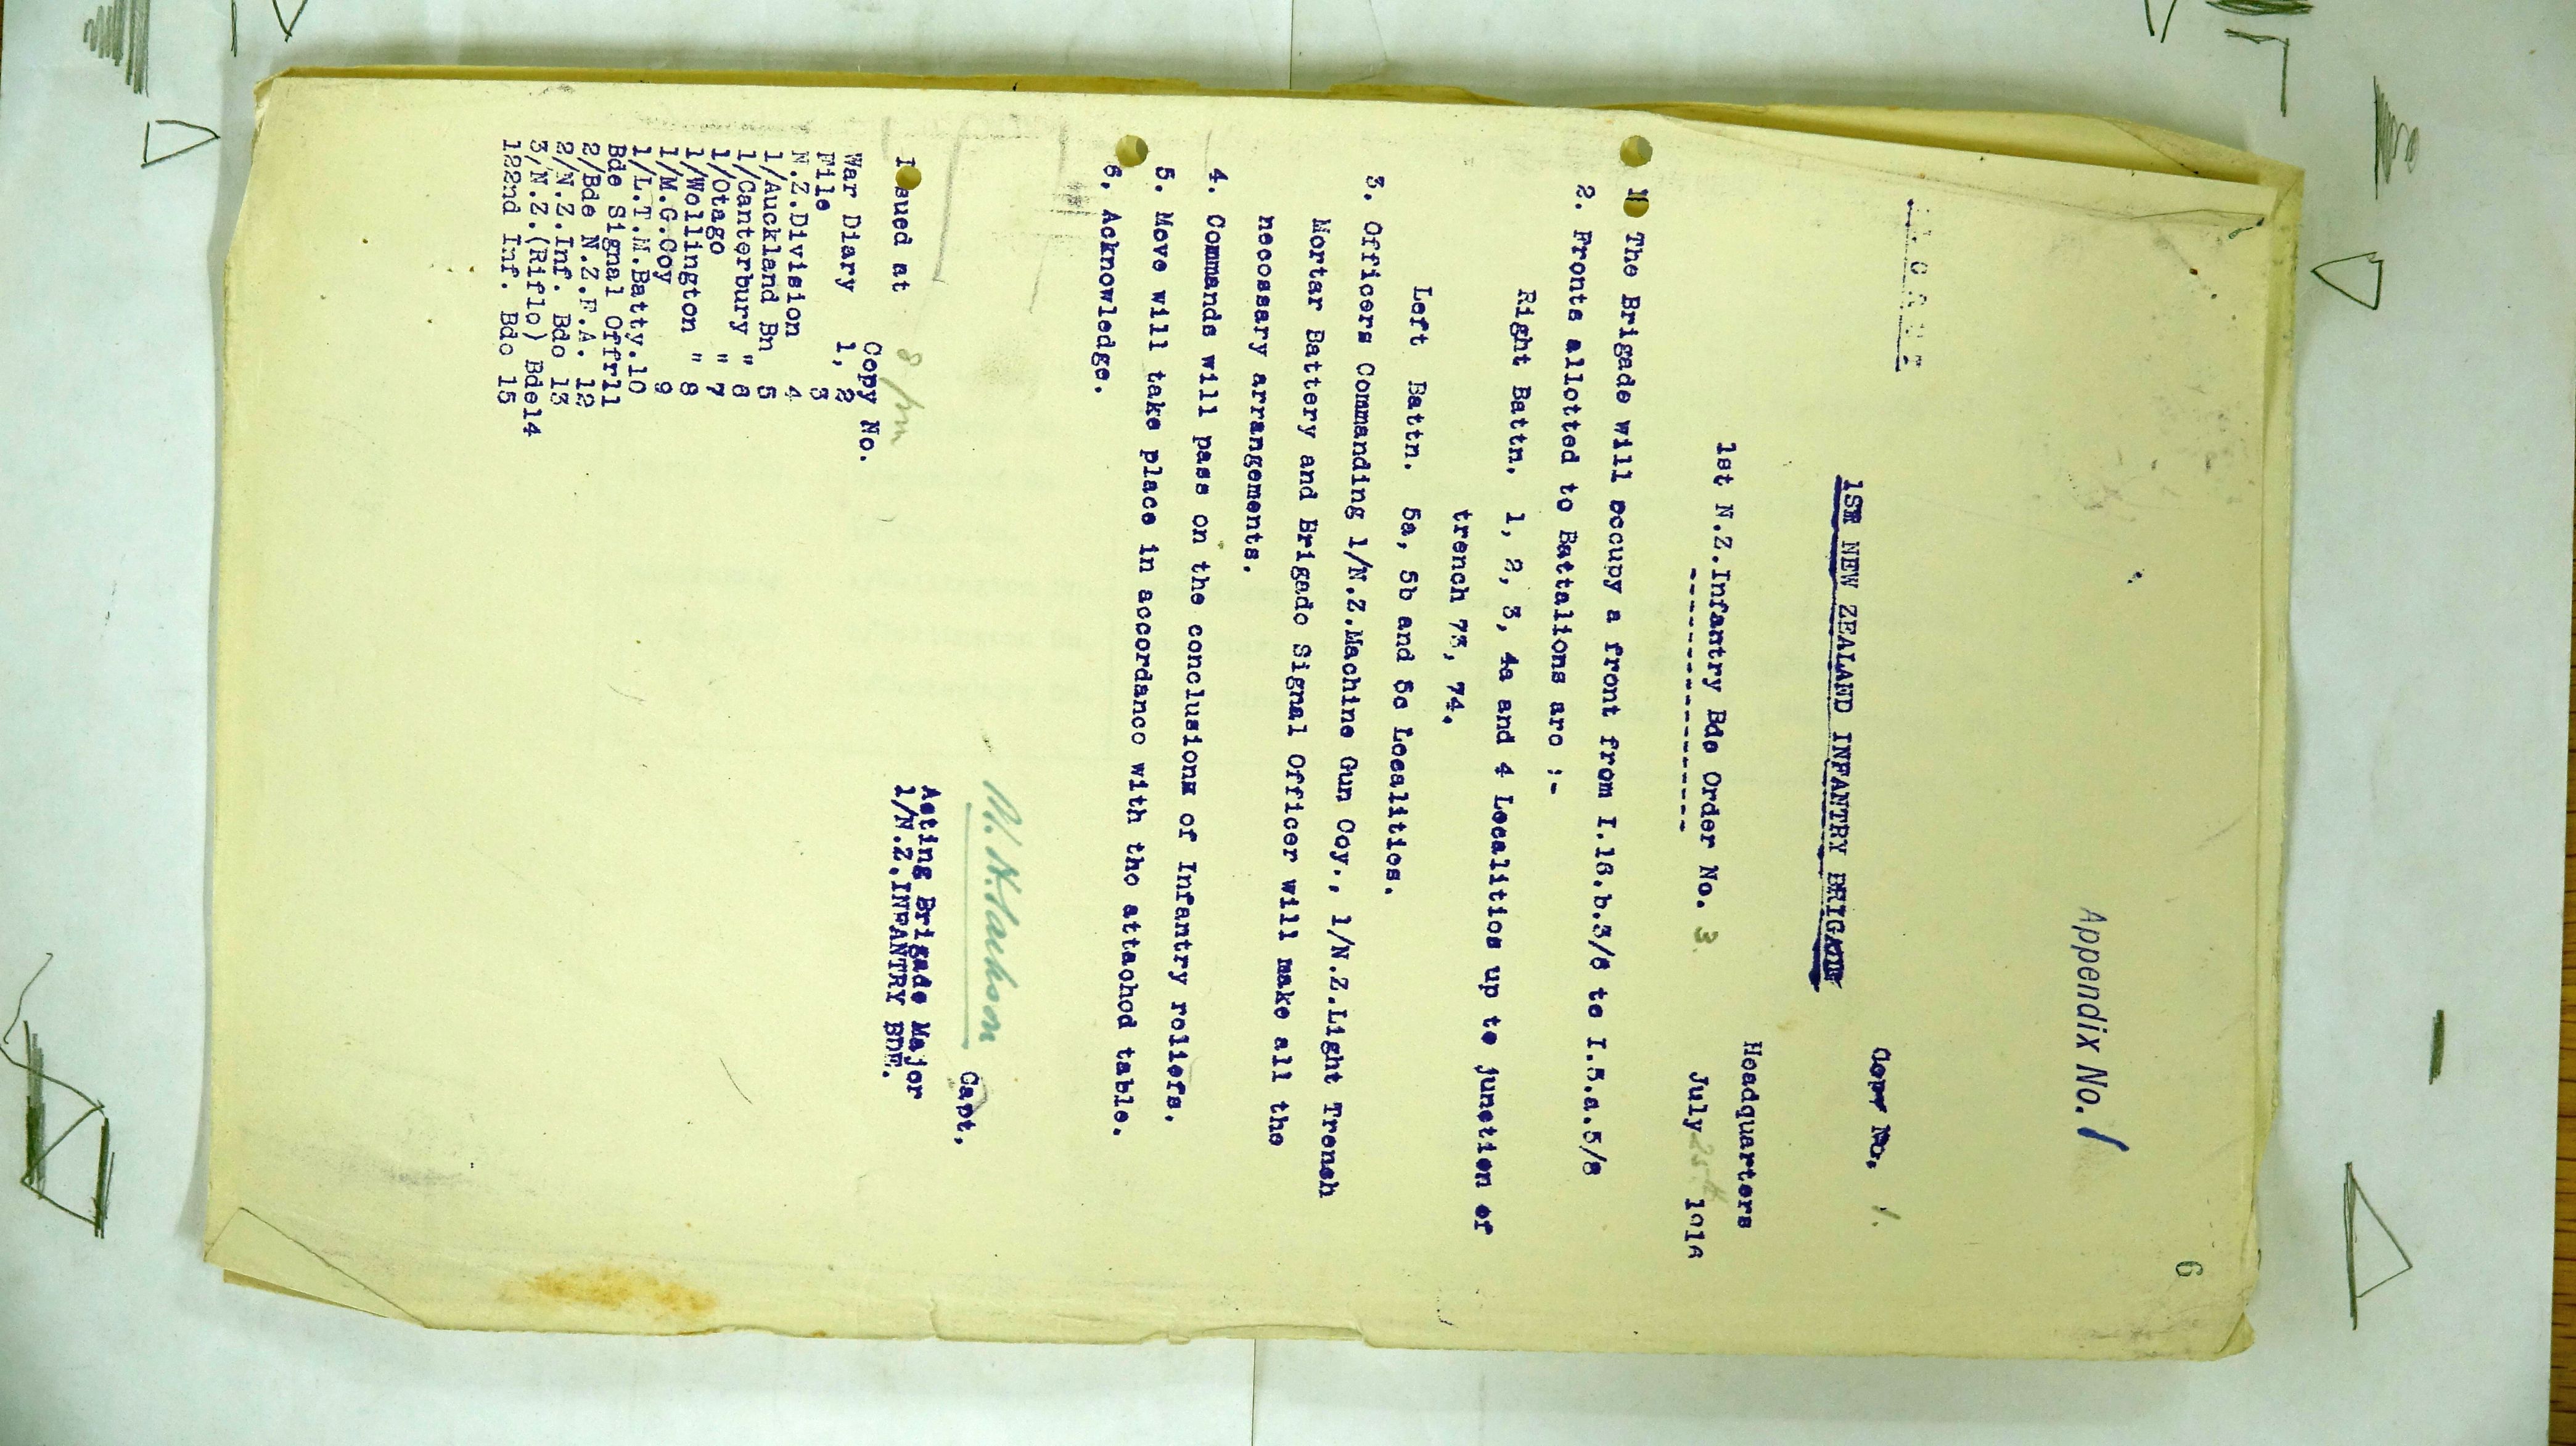 6
Appendix No. 1
Copy No. 1.
1ST NEW ZEALAND INFANTRY BRIGADE
Headquarters
1st N.Z.Infantry Bde Order No. 3 July 25th 1916
------------------
The Brigade will occupy a front from I.16.b.3/8 to I.5.a.5/8
2. Fronts allotted to Battalions are :-
Right Battn. 1, 2, 3, 4a and 4 Localities up to junction of
trench 73, 74.
Left Battn. 5a, 5b and 5c Localities.
3. Officers Commanding 1/N.Z.Machine Gun Coy., 1/N.Z.Light Trench
Mortar Battery and Brigade Signal Officer will make all the
necessary arrangements.
4. Commands will pass on the conclusions of Infantry reliefs.
5. Move will take place in accordance with the attached table.
6. Acknowledge.
Capt.
Acting Brigade Major
1/N.Z.INFANTRY BDE.
Issued at 8 pm
Copy No.
War Diary 1, 2
File 3
N.Z.Division 4
1/Auckland Bn 5
1/Canterbury " 6
1/Otago " 7
1/Wellington " 8
1/M.G.Coy 9
1/L.T.M.Batty.10
Bde Signal Offr11
2/Bde N.Z.F.A. 12
2/N.Z.Inf. Bde 13
3/N.Z.(Rifle) Bde14
122nd Inf. Bde 15